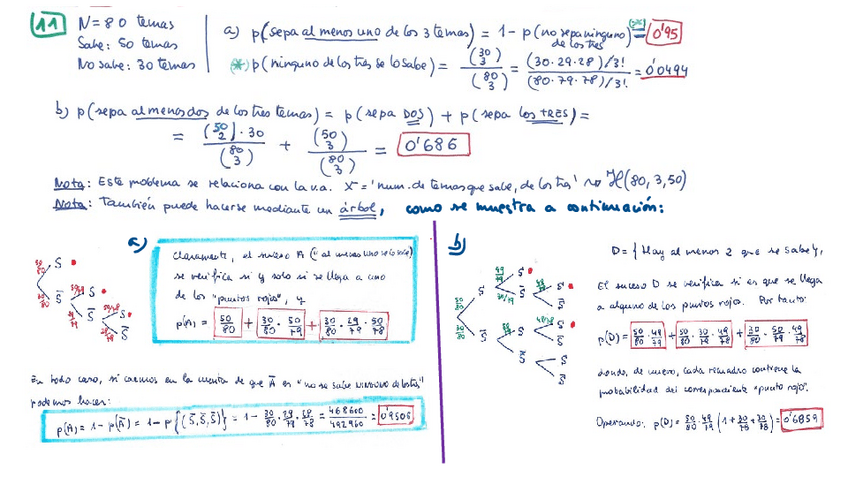 11
N = 80 temas
Sabe: 50 temas
No sabe: 30 temas
a) p(sepa al menos uno de los 3 temas) = 1 - p(no sepa ninguno de los tres) (*)= 0'95
(*) p(ninguno de los tres se lo sabe) = (30 3)/(80 3) = (30·29·28)/3! / (80·79·78)/3! = 0'0494
b) p(sepa al menos dos de los tres temas) = p(sepa DOS) + p(sepa los TRES) =
= (50 2)·30/(80 3) + (50 3)/(80 3) = 0'686
Nota: Este problema se relaciona con la v.a. X = 'num. de temas que sabe, de los tres' ~ H(80, 3, 50)
Nota: También puede hacerse mediante un árbol, como se muestra a continuación:
a)
Claramente, el suceso A ("al menos uno se lo sabe")
se verifica si y solo si se llega a uno
de los "puntos rojos", y
p(A) = 50/80 + 30/80 · 50/79 + 30/80 · 29/79 · 50/78
En todo caso, si caemos en la cuenta de que Ā es "no se sabe ninguno de los tres"
podemos hacer:
p(A) = 1 - p(Ā) = 1 - p{(S̄,S̄,S̄)} = 1 - 30/80 · 29/79 · 28/78 = 468600/492960 = 0'9506
b)
D = { Hay al menos 2 que se sabe},
El suceso D se verifica si es que se llega
a alguno de los puntos rojos. Por tanto:
p(D) = 50/80 · 49/79 + 50/80 · 30/79 · 49/78 + 30/80 · 50/79 · 49/78
donde, de nuevo, cada recuadro contiene la
probabilidad del correspondiente "punto rojo".
Operando: p(D) = 50/80 · 49/79 (1 + 30/78 + 30/78) = 0'6859